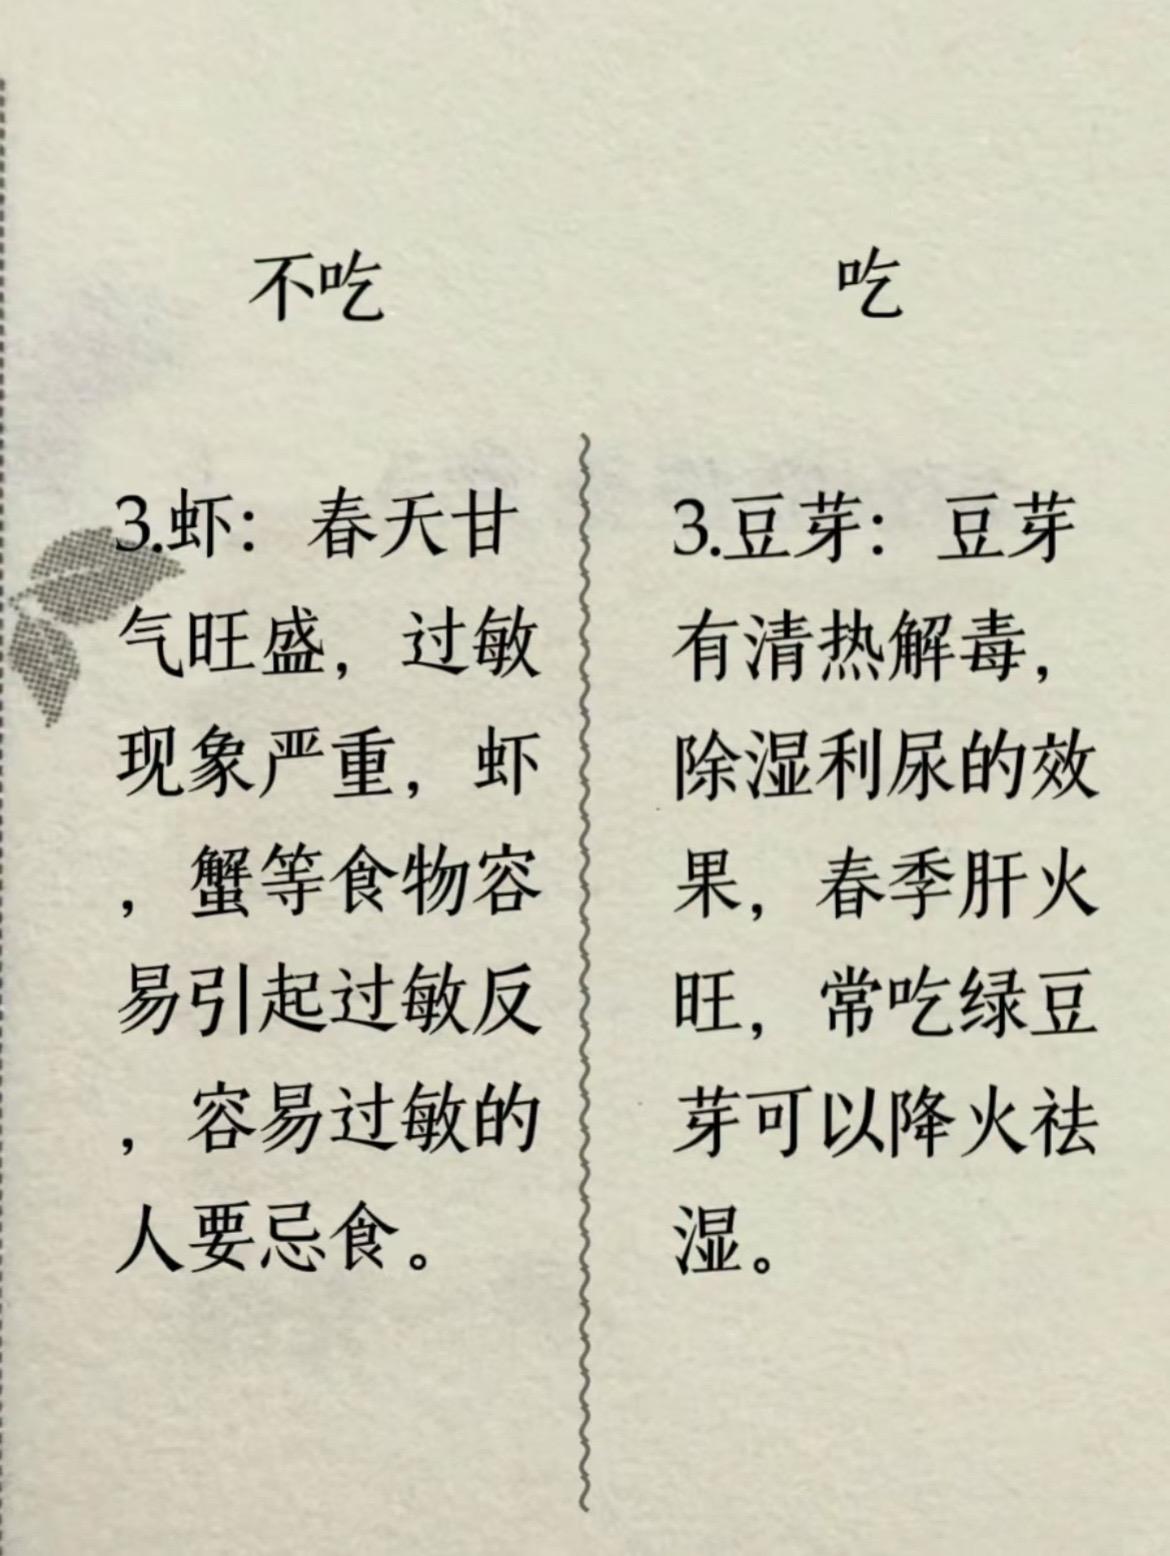 不吃
3.虾：春天甘
气旺盛，过敏
现象严重，虾
，蟹等食物容
易引起过敏反
，容易过敏的
人要忌食。
吃
3.豆芽：豆芽
有清热解毒，
除湿利尿的效
果，春季肝火
旺，常吃绿豆
芽可以降火祛
湿。